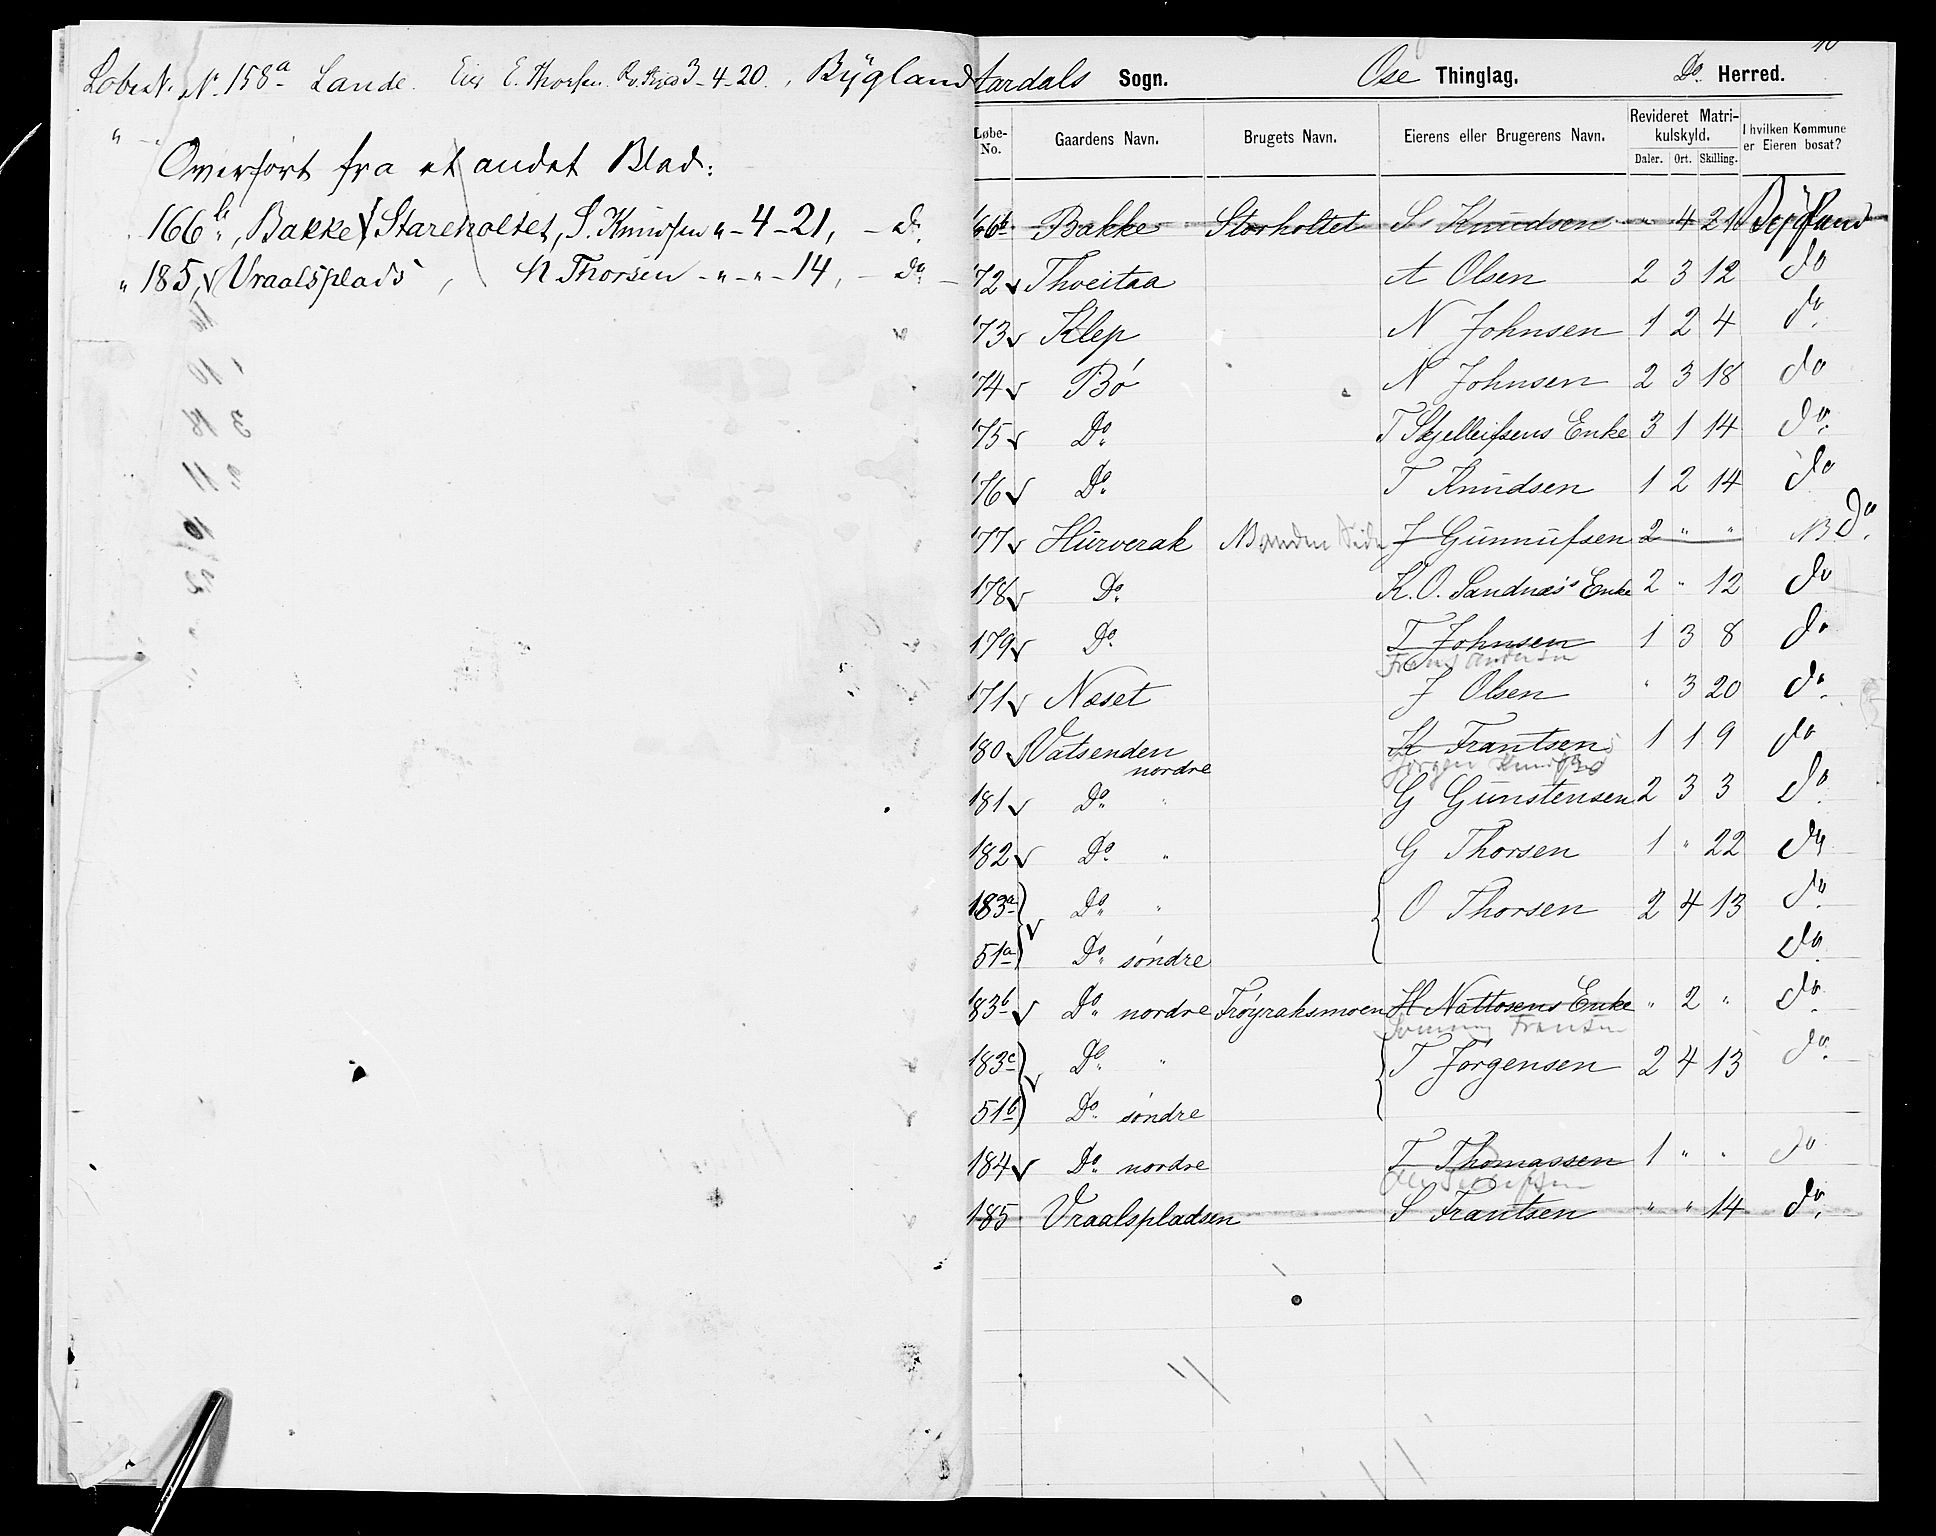 LøbeN. Nº 158a Lande. Eier E. Thorsen. Rv. Skyld 3-4-20., Bygland
Overført fra et andet Blad:
166b, Bakke, Stareholtet, S. Knudsen " - 4 - 21, - do
" 185, Vraalsplads, N Thorsen - " - " - 14, - do
Aardals Sogn. Ose Thinglag. Do. Herred.
Løbe-No. Gaardens Navn. Brugets Navn. Eierens eller Brugerens Navn. Revideret Matrikulskyld. I hvilken Kommune er Eieren bosat?
Daler. Ort. Skilling.
166b Bakke Storholtet S. Knudsen " 4 21 Bygland
172 Thveitaa A Olsen 2 3 12 do
173 Klep N Johnsen 1 2 4 do
174 Bö N Johnsen 2 3 18 do
175 Do. T Skjelleifsens Enke 3 1 14 do.
176 Do. T Knudsen 1 2 14 do
177 Hurverak NB anden Side J Gunnufsen 2 " " NB do.
178 Do. K. O. Sandnæs's Enke 2 " 12 do
179 Do. T Johnsen 1 3 8 do
171 Næset J Olsen " 3 20 do.
180 Vatsenden nordre Frantsen 1 1 9 do
Jørgen
181 Do. " G Gunstensen 2 3 3 do.
182 Do. " G Thorsen 1 " 22 do
183a Do. " O Thorsen 2 4 13 do.
51a Do. söndre do.
183b Do. nordre Fröyraksmoen H Nattosens Enke " 2 " do.
Fransen
183c Do. " T Jörgensen 2 4 13 do.
51b Do. söndre
184 Do. nordre T Thomassen 1 " " do
185 Vraalspladsen S Frantsen " " 14 do.